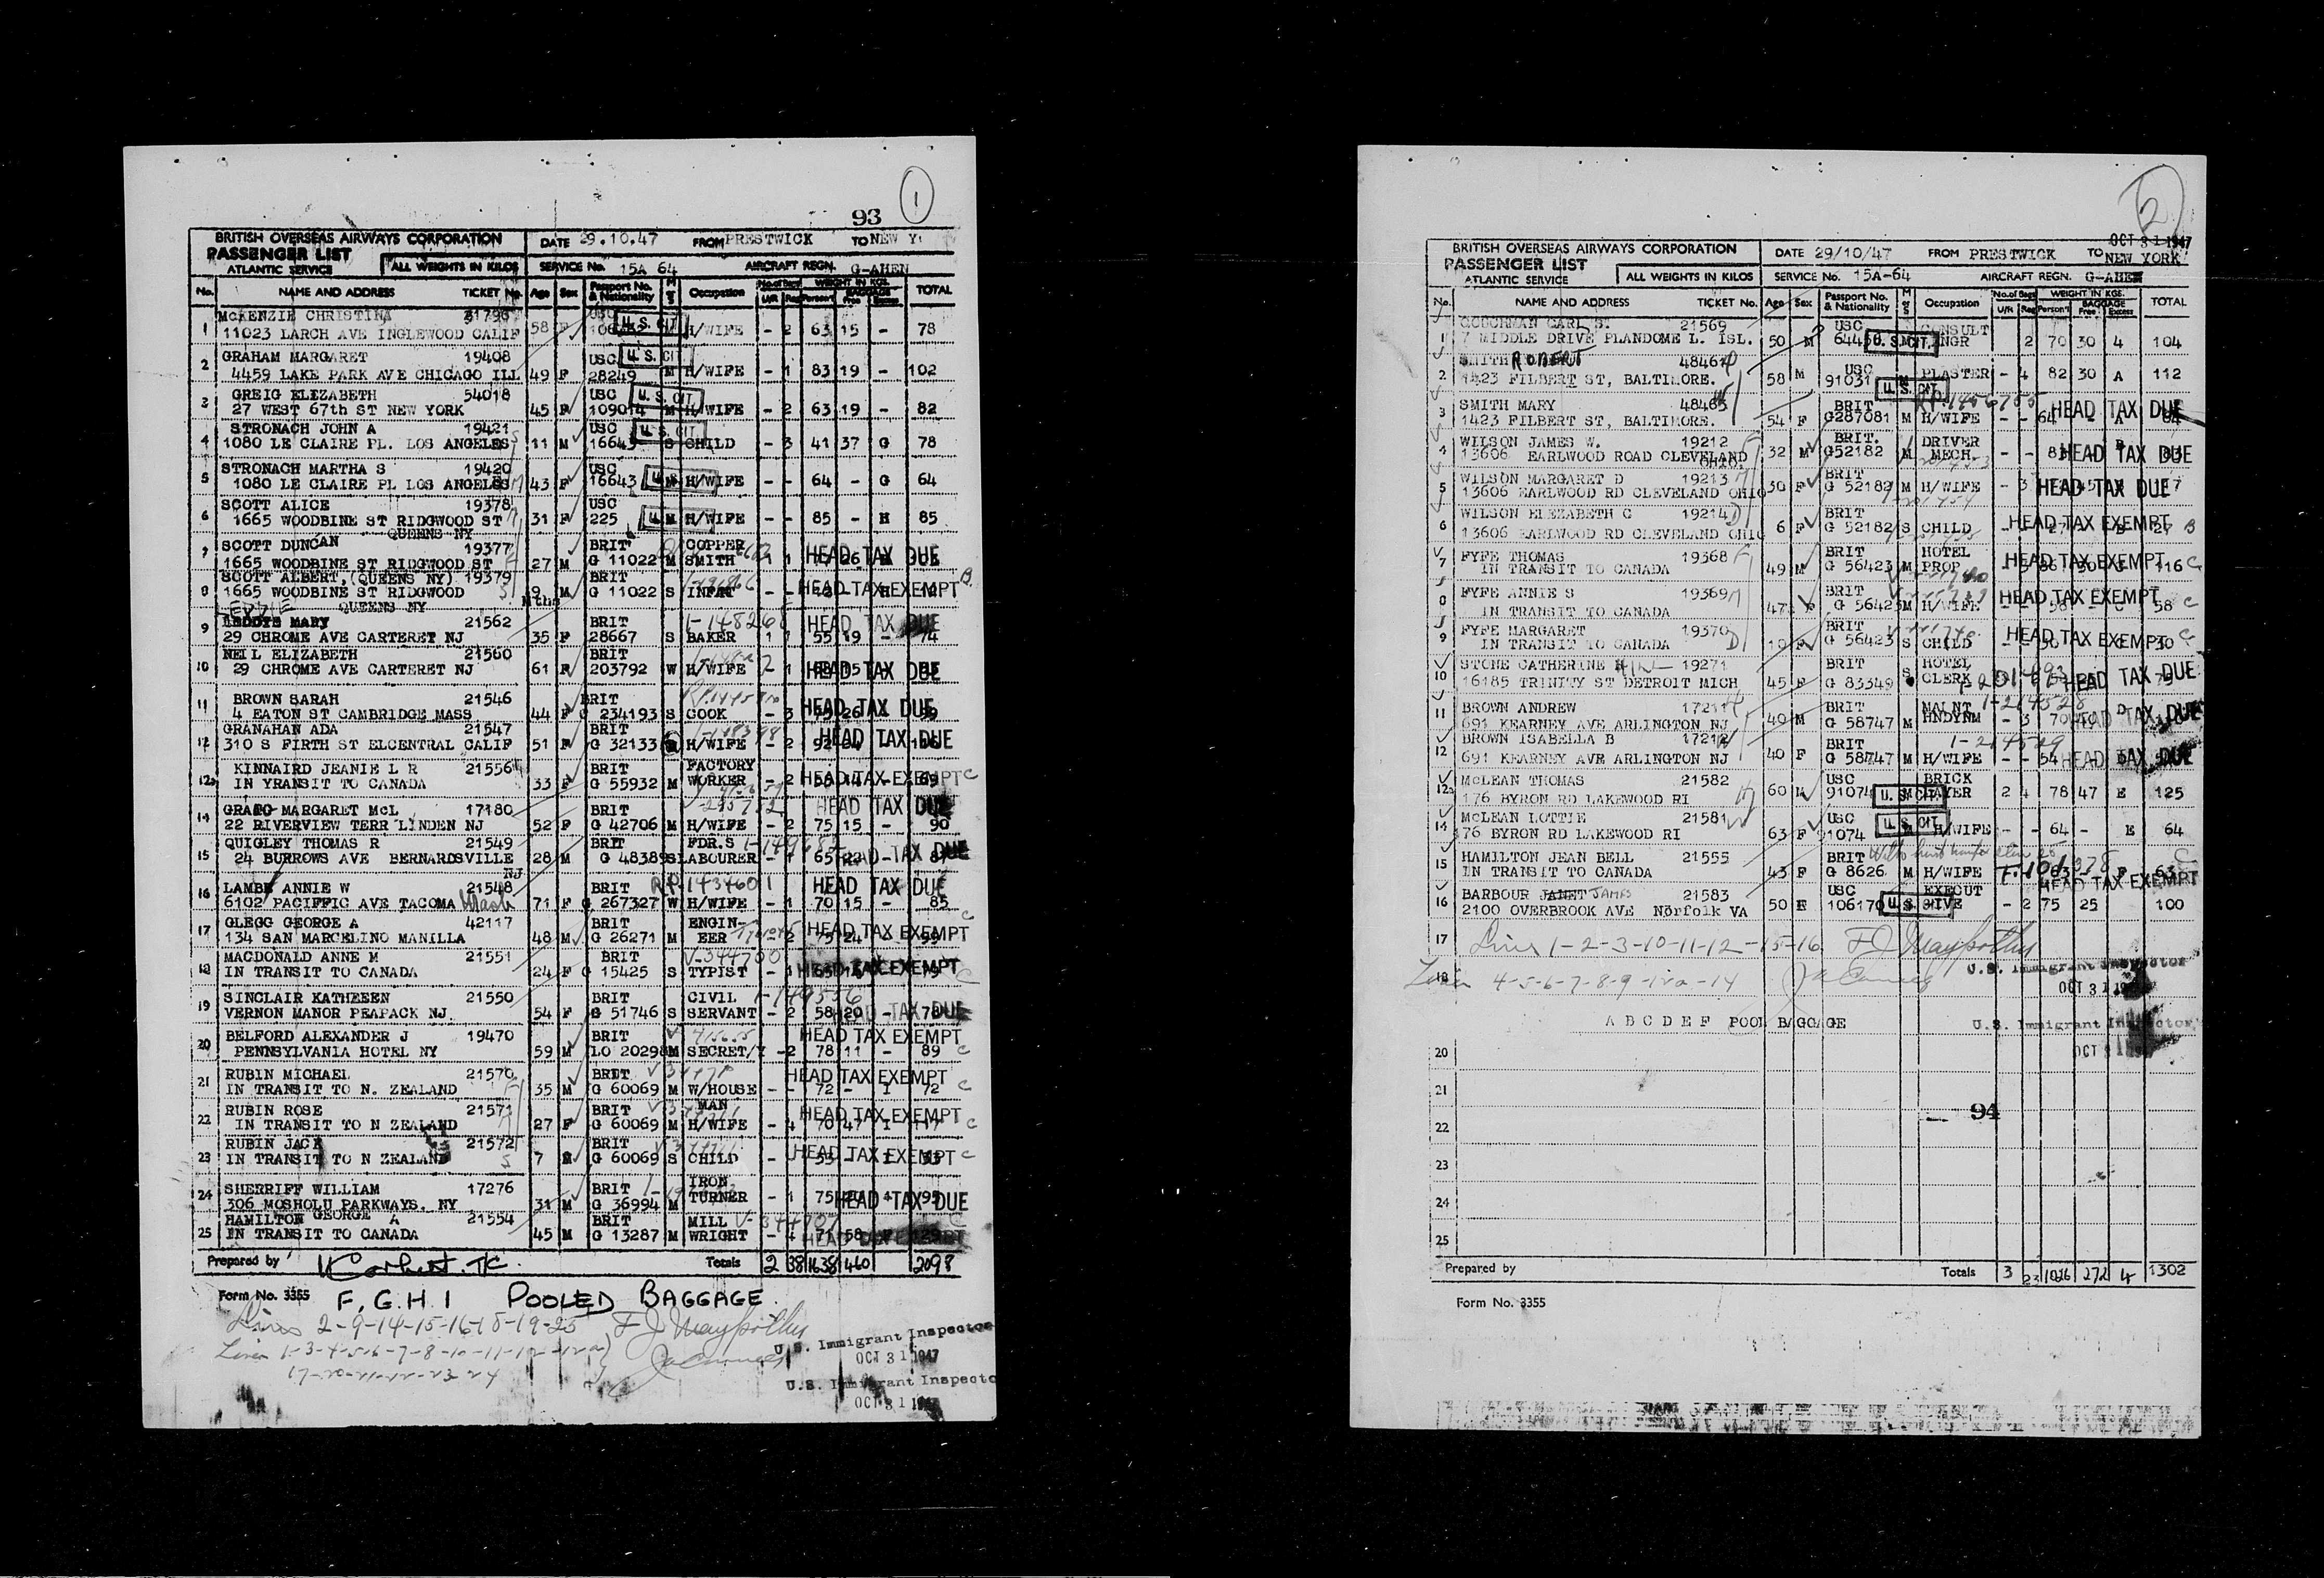 93
1
BRITISH OVERSEAS AIRWAYS CORPORATION DATE 29.10.47 FROM PRESTWICK TO NEW Y
PASSENGER LIST
ATLANTIC SERVICE ALL WEIGHTS IN KILOS SERVICE No. 15A 64 AIRCRAFT REGN. G-AHEN
No. NAME AND ADDRESS TICKET No. Age Sex Passport No. & Nationality M or S Occupation No. of Bags U/R Reg WEIGHT IN KGS. Person'l BAGGAGE Free Excess TOTAL
1 McKENZIE CHRISTINA USC U.S. CIT.
11023 LARCH AVE INGLEWOOD CALIF 58 F H/WIFE - 2 63 15 - 78
2 GRAHAM MARGARET 19408 USC U.S. CIT
4459 LAKE PARK AVE CHICAGO ILL 49 F 28249 M H/WIFE - 1 83 19 - 102
3 GREIG ELIZABETH 54018 USC U.S. CIT.
27 WEST 67th ST NEW YORK 45 F 109014 M H/WIFE - 2 63 19 - 82
4 STRONACH JOHN A 19421 USC U.S. CIT.
1080 LE CLAIRE PL. LOS ANGELES 11 M 16643 S CHILD - 3 41 37 G 78
5 STRONACH MARTHA S 19420 USC
1080 LE CLAIRE PL LOS ANGELES 43 F 16643 M H/WIFE - - 64 - G 64
6 SCOTT ALICE 19378 USC
1665 WOODBINE ST RIDGWOOD ST 31 F 225 M H/WIFE - - 85 - H 85
QUEENS NY
7 SCOTT DUNCAN 19377 BRIT COPPER
1665 WOODBINE ST RIDGWOOD ST 27 M G 11022 M SMITH 1 1 HEAD TAX DUE
8 SCOTT ALBERT, (QUEENS NY) 19379 BRIT
1665 WOODBINE ST RIDGWOOD 9 Mths M G 11022 S INFNT HEAD TAX EXEMPT B
QUEENS NY
9 MARY 21562 BRIT HEAD TAX
29 CHROME AVE CARTERET NJ 35 F 28667 S BAKER 1 1 55 19 - 74
10 NEIL ELIZABETH 21560 BRIT
29 CHROME AVE CARTERET NJ 61 F 203792 W H/WIFE - 1 HEAD TAX DUE
11 BROWN SARAH 21546 BRIT
4 EATON ST CAMBRIDGE MASS 44 F G 234193 S COOK - 3 HEAD TAX DUE
12 GRANAHAN ADA 21547 BRIT
310 S FIRTH ST ELCENTRAL CALIF 51 F G 32133 H/WIFE - 2 HEAD TAX DUE
12a KINNAIRD JEANIE L R 21556 BRIT FACTORY
IN YRANSIT TO CANADA 33 F G 55932 M WORKER - 2 HEAD TAX EXEMPT C
14 MARGARET McL 17180 BRIT HEAD TAX DUE
22 RIVERVIEW TERR LINDEN NJ 52 F G 42706 M H/WIFE - 2 75 15 - 90
15 QUIGLEY THOMAS R 21549 BRIT FDR.S
24 BURROWS AVE BERNARDSVILLE 28 M G 48389 S LABOURER - 1 65 22 - 87 HEAD TAX DUE
NJ
16 LAMBE ANNIE W 21548 BRIT HEAD TAX DUE
6102 PACIFFIC AVE TACOMA Wash 71 F G 267327 W H/WIFE - 1 70 15 - 85
17 GLEGG GEORGE A 42117 BRIT ENGIN-
134 SAN MARCELINO MANILLA 48 M G 26271 M EER - 2 75 24 HEAD TAX EXEMPT C
18 MACDONALD ANNE M 21551 BRIT V-344700
IN TRANSIT TO CANADA 24 F G 15425 S TYPIST - 1 HEAD TAX EXEMPT C
19 SINCLAIR KATHEEEN 21550 BRIT CIVIL
VERNON MANOR PEAPACK NJ. 54 F G 51746 S SERVANT - 2 58 20 - 78 HEAD TAX DUE
20 BELFORD ALEXANDER J 19470 BRIT HEAD TAX EXEMPT
PENNSYLVANIA HOTEL NY 59 M LO 20298 M SECRET/Y - 2 78 11 - 89 C
21 RUBIN MICHAEL 21570 BRIT HEAD TAX EXEMPT
IN TRANSIT TO N. ZEALAND 35 M G 60069 M W/HOUSE - - 72 - I 72 C
22 RUBIN ROSE 21571 BRIT MAN HEAD TAX EXEMPT
IN TRANSIT TO N ZEALAND 27 F G 60069 M H/WIFE - 4 70 47 I 117 C
23 RUBIN JACK 21572 BRIT HEAD TAX EXEMPT C
IN TRANSIT TO N ZEALAND 7 M G 60069 S CHILD
24 SHERRIFF WILLIAM 17276 BRIT IRON
306 MOSHOLU PARKWAYS. NY 31 M G 36994 M TURNER - 1 75 95 HEAD TAX DUE
25 HAMILTON GEORGE A 21554 BRIT MILL V-344707
IN TRANSIT TO CANADA 45 M G 13287 M WRIGHT - 4 71 58 129
Prepared by Totals 2 38 1638 460 2098
Form No. 3355 F, G. H. I POOLED BAGGAGE.
Lines 2-9-14-15-16-18-19-25
Lines 1-3-4-5-6-7-8-10-11-12-12a
17-20-21-22-23 24
U.S. Immigrant Inspector
OCT 31 1947
U.S. Immigrant Inspecto
OCT 31 1947
2
OCT 31 1947
BRITISH OVERSEAS AIRWAYS CORPORATION DATE 29/10/47 FROM PRESTWICK TO NEW YORK
PASSENGER LIST
ATLANTIC SERVICE ALL WEIGHTS IN KILOS SERVICE No. 15A-64 AIRCRAFT REGN. G-AHEN
No. NAME AND ADDRESS TICKET No. Age Sex Passport No. & Nationality M or S Occupation No. of Bags U/R Reg WEIGHT IN KGS. Person'l BAGGAGE Free Excess TOTAL
1 CARL S. 21569 USC CONSULT
7 MIDDLE DRIVE PLANDOME L. ISL. 50 M U.S. CIT. ENGR 2 70 30 4 104
2 SMITH ROBERT USC PLASTER - 4 82 30 A 112
1423 FILBERT ST, BALTIMORE. 58 M 91031 U.S. CIT.
3 SMITH MARY 48465 BRIT HEAD TAX DUE
1423 FILBERT ST, BALTIMORE. 54 F G287081 M H/WIFE - - 64 - A 64
4 WILSON JAMES W. 19212 BRIT. DRIVER
13606 EARLWOOD ROAD CLEVELAND 32 M G52182 M MECH. - - HEAD TAX DUE
OHIO.
5 WILSON MARGARET D 19213 BRIT
13606 EARLWOOD RD CLEVELAND OHIO 30 F G 52182 M H/WIFE - 3 HEAD TAX DUE
6 WILSON ELEZABETH C 19214 BRIT
13606 EARLWOOD RD CLEVELAND OHIO 6 F G 52182 S CHILD HEAD TAX EXEMPT 27 B
7 FYFE THOMAS 19368 BRIT HOTEL HEAD TAX EXEMPT
IN TRANSIT TO CANADA 49 M G 56423 M PROP 116 C
8 FYFE ANNIE S 19369 BRIT HEAD TAX EXEMPT
IN TRANSIT TO CANADA 47 F G 56423 M H/WIFE - - 58 - C 58 C
9 FYFE MARGARET 19370 BRIT
IN TRANSIT TO CANADA 10 F G 56423 S CHILD HEAD TAX EXEMPT 30 C
10 STONE CATHERINE 19271 BRIT HOTEL
16185 TRINITY ST DETROIT MICH 45 F G 83349 S CLERK HEAD TAX DUE
11 BROWN ANDREW 17211 BRIT MAINT 1-214528
691 KEARNEY AVE ARLINGTON NJ 40 M G 58747 M HNDYMN - 3 HEAD TAX DUE
12 BROWN ISABELLA B 17212 BRIT 1-214529
691 KEARNEY AVE ARLINGTON NJ 40 F G 58747 M H/WIFE - - 54 HEAD TAX DUE
12a McLEAN THOMAS 21582 USC BRICK
176 BYRON RD LAKEWOOD RI 60 M 91074 U.S. CIT. LAYER 2 4 78 47 E 125
14 McLEAN LOTTIE 21581 USC U.S. CIT.
176 BYRON RD LAKEWOOD RI 63 F 91074 H/WIFE - - 64 - E 64
15 HAMILTON JEAN BELL 21555 BRIT
IN TRANSIT TO CANADA 43 F G 8626 M H/WIFE HEAD TAX EXEMPT
16 BARBOUR JANET JAMES 21583 USC EXECUT
2100 OVERBROOK AVE Norfolk VA 50 106170 U.S. CIT. IVE - 2 75 25 100
17 Lines 1-2-3-10-11-12-15-16
18 Lines 4-5-6-7-8-9-12a-14
U.S. Immigrant Inspector
OCT 31
A B C D E F POOL BAGGAGE
U.S. Immigrant Inspector
OCT 31
20
21
94
22
23
24
25
Prepared by Totals 3 23 1026 272 4 1302
Form No. 3355